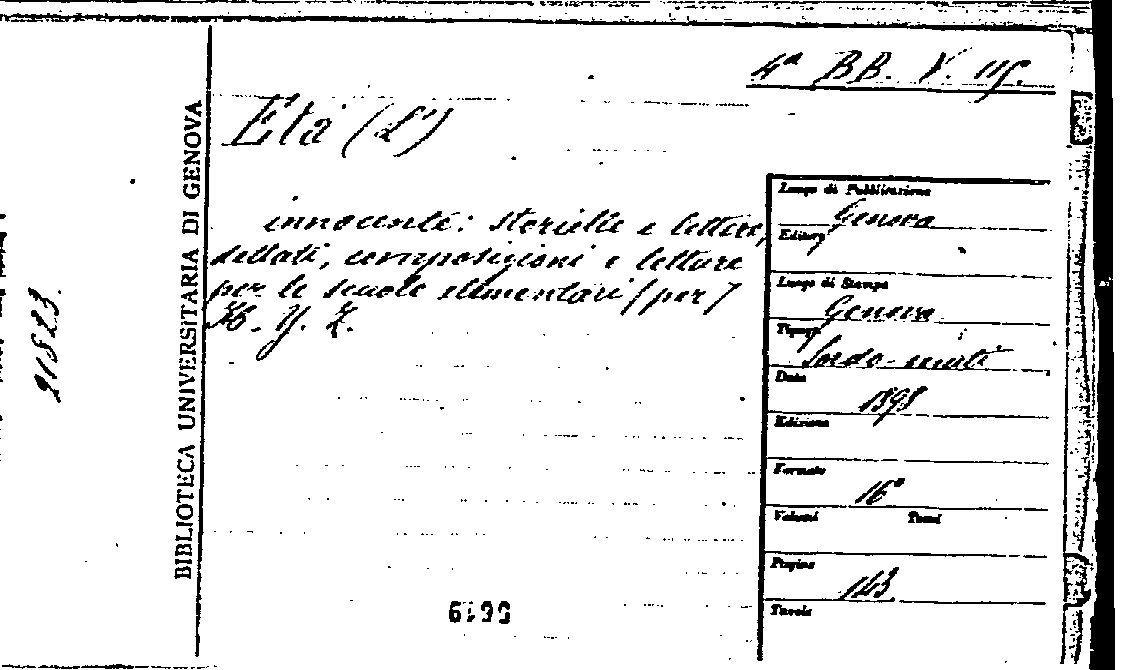 4ª BB. V. 115.
Età (L')
innocente: storielle e lettere,
dettati, composizioni e letture
per le scuole elementari (per)
X. Y. Z.
BIBLIOTECA UNIVERSITARIA DI GENOVA
21823.
Luogo di Pubblicazione
Genova
Editore
Luogo di Stampa
Genova
Tipogr.
Sordo-muti
Data
1898
Edizione
Formato
16º
Volumi Tomi
Pagine
143.
Tavole